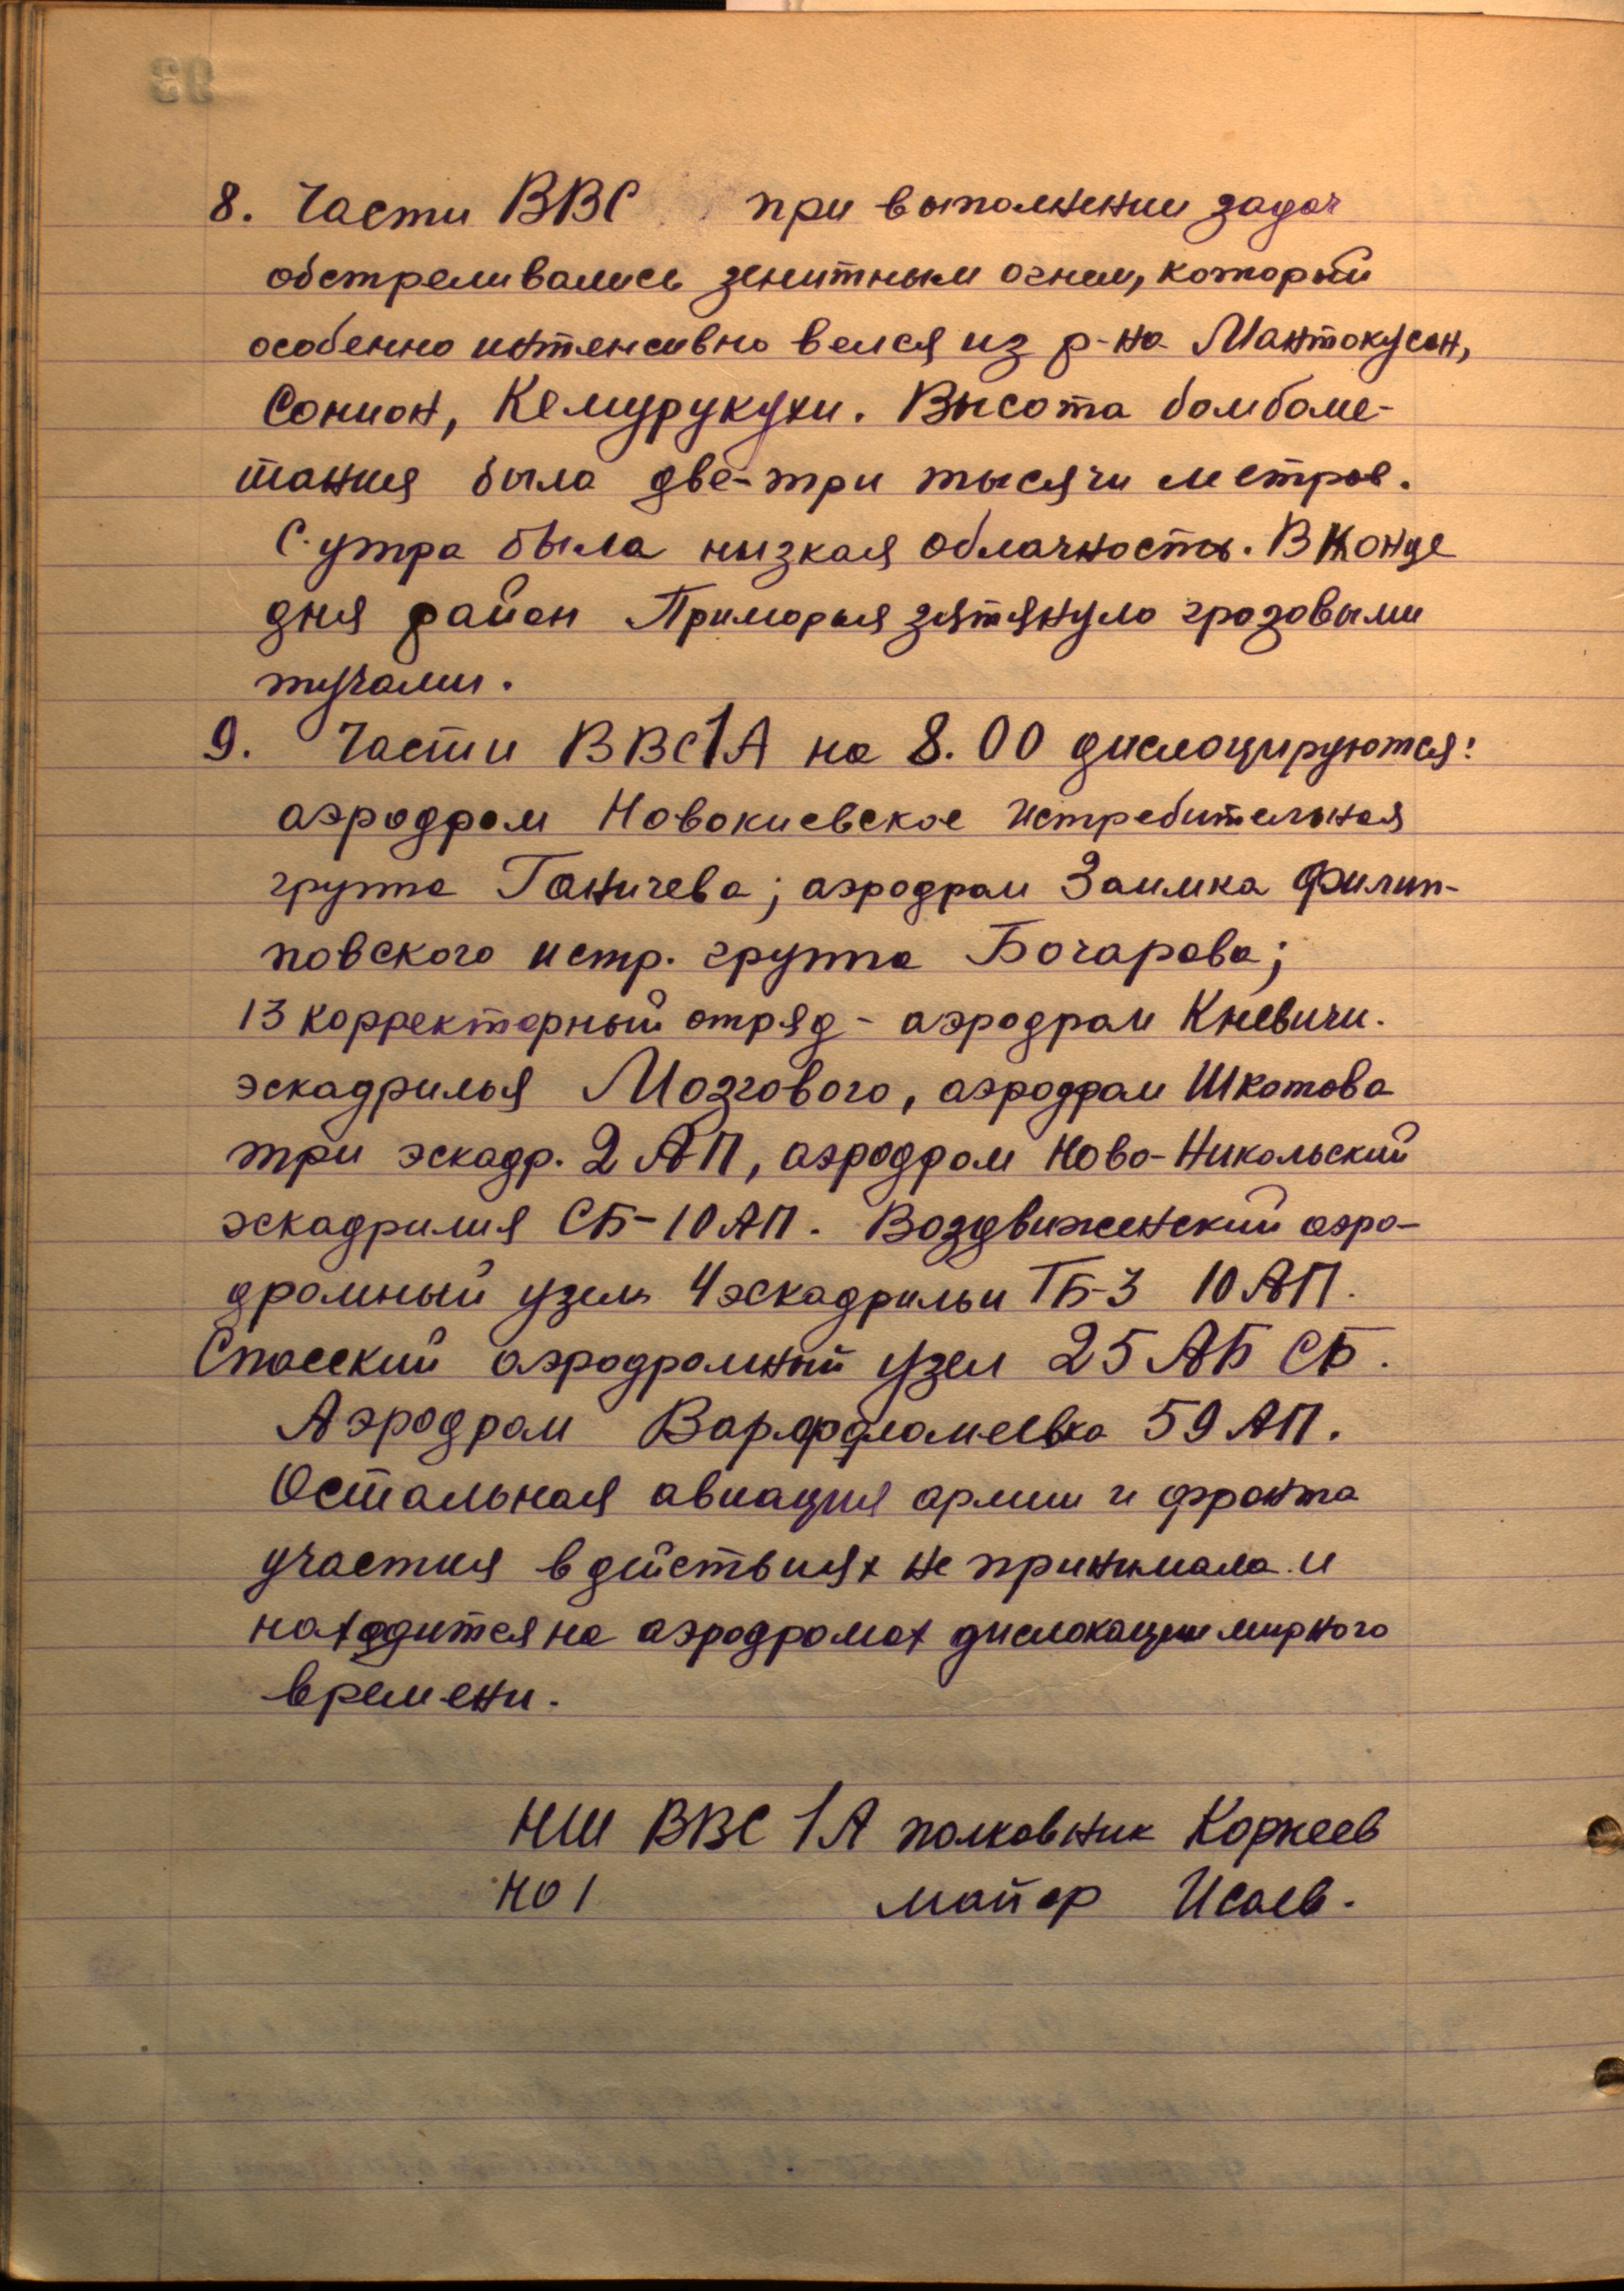 8. Части ВВС при выполнении задач
обстреливались зенитным огнем, который
особенно интенсивно велся из р-на Мантокусан,
Сонион, Кемурукухи. Высота бомбоме-
тания была две-три тысячи метров.
С утра была низкая облачность. В конце
дня район Приморья затянуло грозовыми
тучами.
9. Части ВВС 1А на 8.00 дислоцируются:
аэродром Новокиевское истребительная
группа Ганичева; аэродром Заимка Филип-
повского истр. группа Бочарова;
13 корректорный отряд - аэродром Кневичи.
эскадрилья Мозгового, аэродром Шкотова
три эскадр. 2 АП, аэродром Ново-Никольский
эскадрилия СБ-10 АП. Воздвиженский аэро-
дромный узел 4 эскадрильи ТБ-3 10 АП.
Спасский аэродромный узел 25 АБ СБ.
Аэродром Варфоломеевка 59 АП.
Остальная авиация армии и фронта
участия в действиях не принимала и
находится на аэродромах дислокации мирного
времени.
НШ ВВС 1А полковник Корнеев
НО 1 майор Исаев.